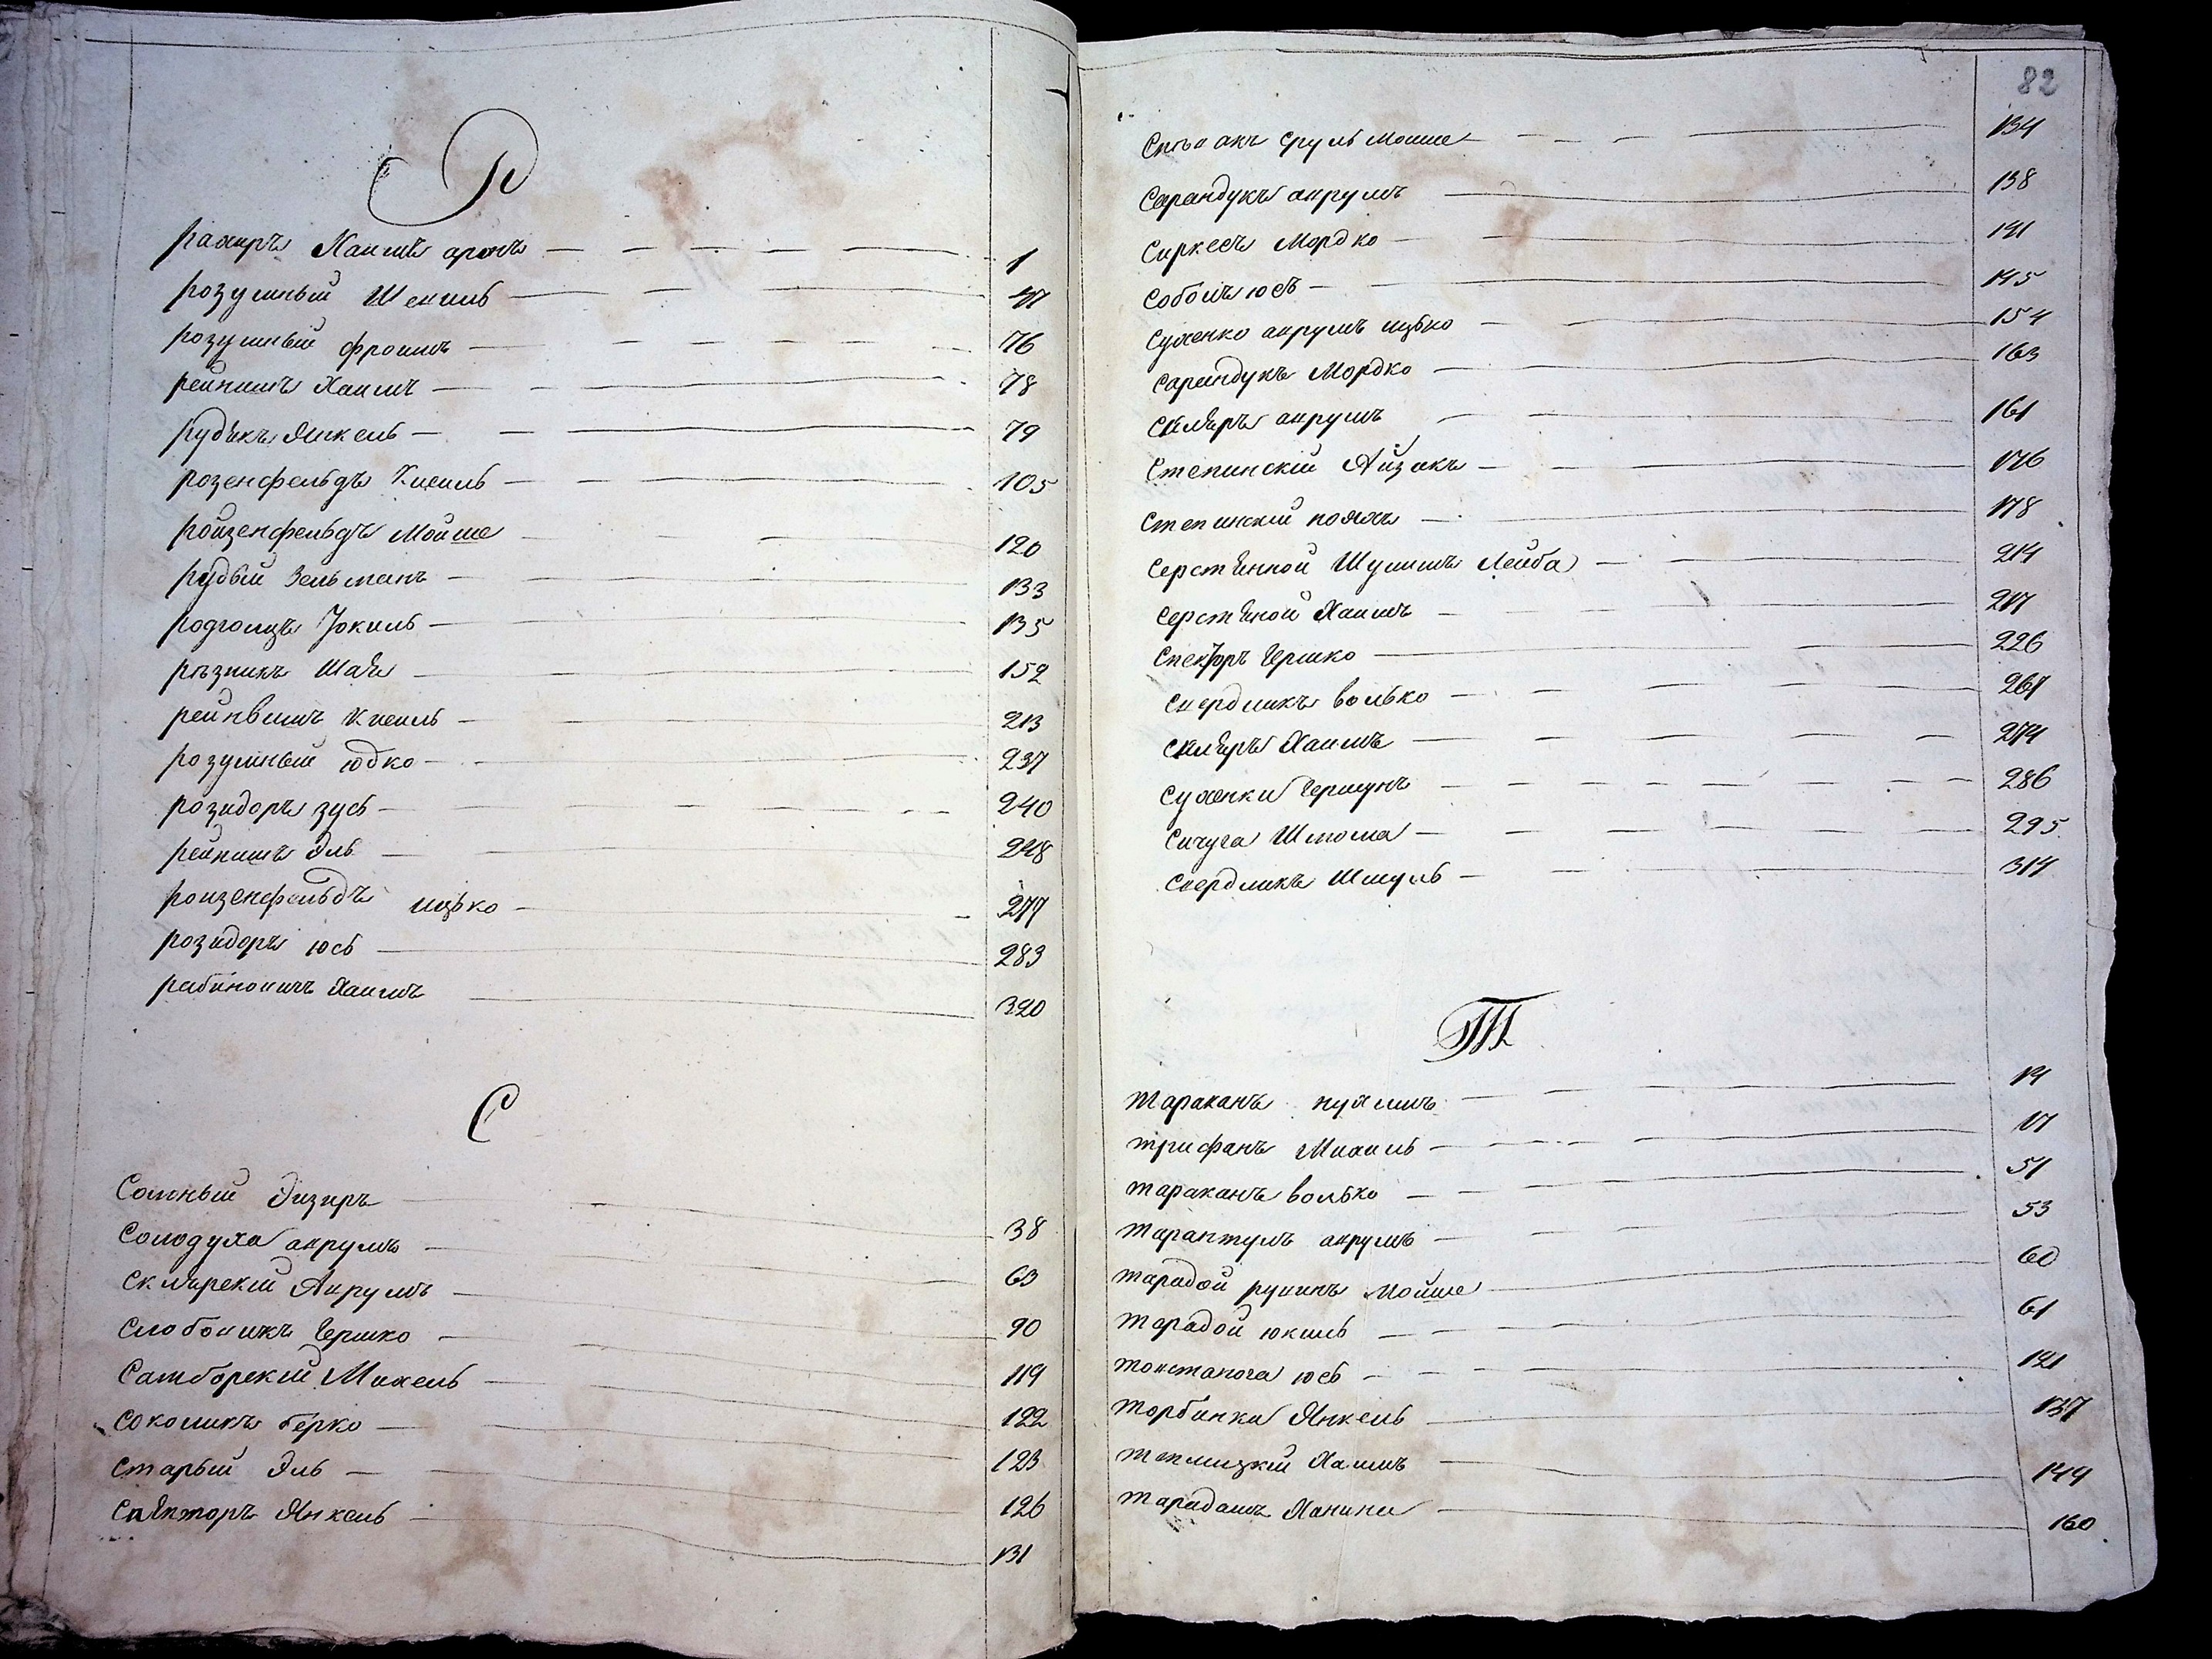 Р
рахиръ Хаимъ аронъ 1
розумный Шекиль 47
розумный фроимъ 76
рейнишъ Хаимъ 78
рудыкъ Янкель 79
розенфельдъ Кисиль 105
ройзенфельдъ Мойше 120
рудый Зельманъ 133
родголцъ Іокиль 135
рѣзникъ Шая 152
рейнвишъ Кисиль 213
розумный юдко 237
розидоръ зусь 240
рейнишъ Эль 248
роизенфельдъ ицько 277
розидоръ юсь 283
рабиновичъ Хаимъ 320
С
Сомный Эизиръ 38
Солодуха аврумъ 63
Склярскій Аврумъ 90
Слободникъ Гершко 119
Самборскій Михель 122
Соколикъ берко 123
Старый Эль 126
Спекторъ Янкель 131
82
Спѣвакъ Сруль Мойше 134
Сарандукъ аврумъ 138
Сиркесъ Мордко 141
Соболь юсь 145
Сухенко аврумъ ицько 154
Сарандукъ Мордко 163
Скляръ аврумъ 161
Степинскій Айзикъ 176
Степинскій поляхъ 178
Серстяной Шулимъ Лейба 214
Серстяной Хаимъ 217
Спекторъ Гершко 226
Свердликъ волько 267
Скляръ Хаимъ 274
Сухенки Гершунъ 286
Сичуга Шлома 295
Свердликъ Шмуль 314
Т
Тараканъ нухимъ 14
трифанъ Михиль 17
тараканъ волько 51
Тарантулъ аврумъ 53
тарадой рувинъ Мойше 60
Тарадой юкиль 61
толстаноса юсь 121
Торбинки Янкель 137
Теплицкій Хаимъ 144
Тарадашъ Ханина 160